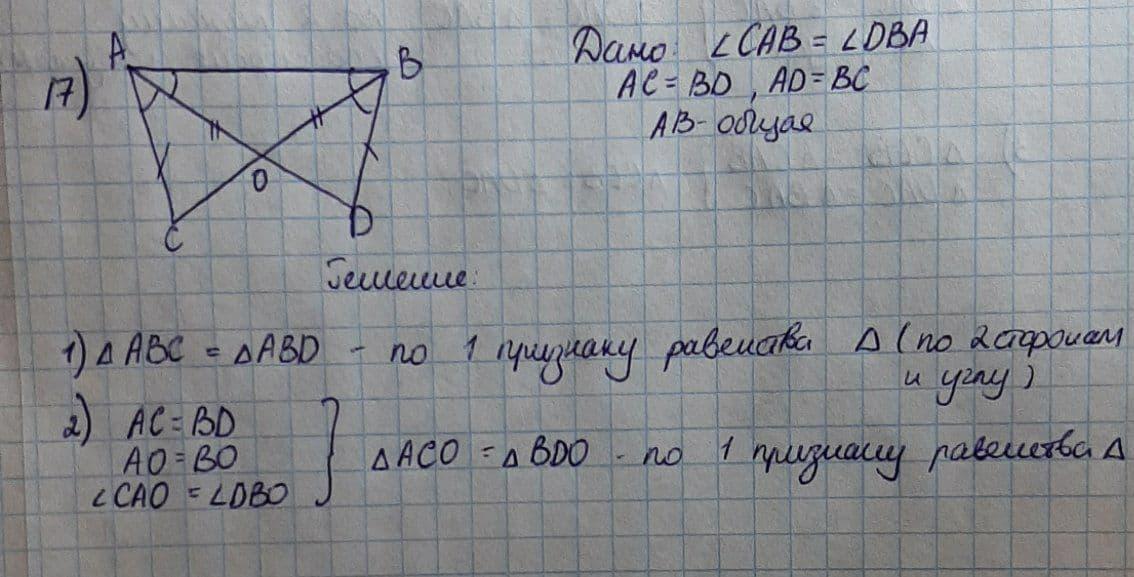 17)
A
B
O
C
D
Дано: ∠CAB = ∠DBA
AC = BD , AD = BC
AB - общая
Решение:
1) △ ABC = △ ABD - по 1 признаку равенства △ (по 2 сторонам
и углу)
2) AC = BD
AO = BO
∠CAO = ∠DBO
△ ACO = △ BDO - по 1 признаку равенства △